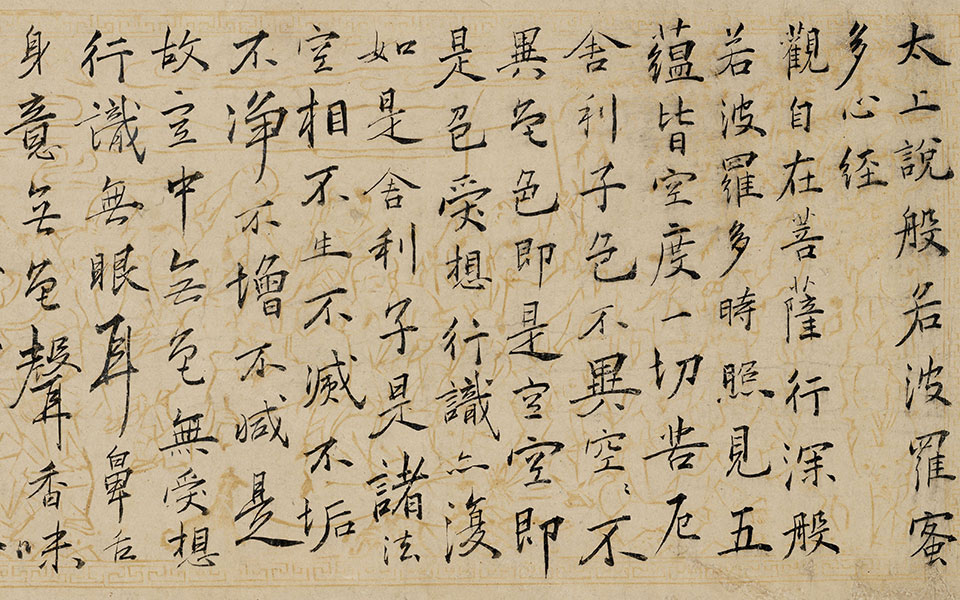 太上說般若波羅蜜
多心経
觀自在菩薩行深般
若波羅多時照見五
蘊皆空度一切苦厄
舍利子色不異空〻不
異色色即是空空即
是色受想行識亦復
如是舍利子是諸法
空相不生不滅不垢
不淨不增不減是
故空中無色無受想
行識無眼耳鼻舌
身意無色聲香味